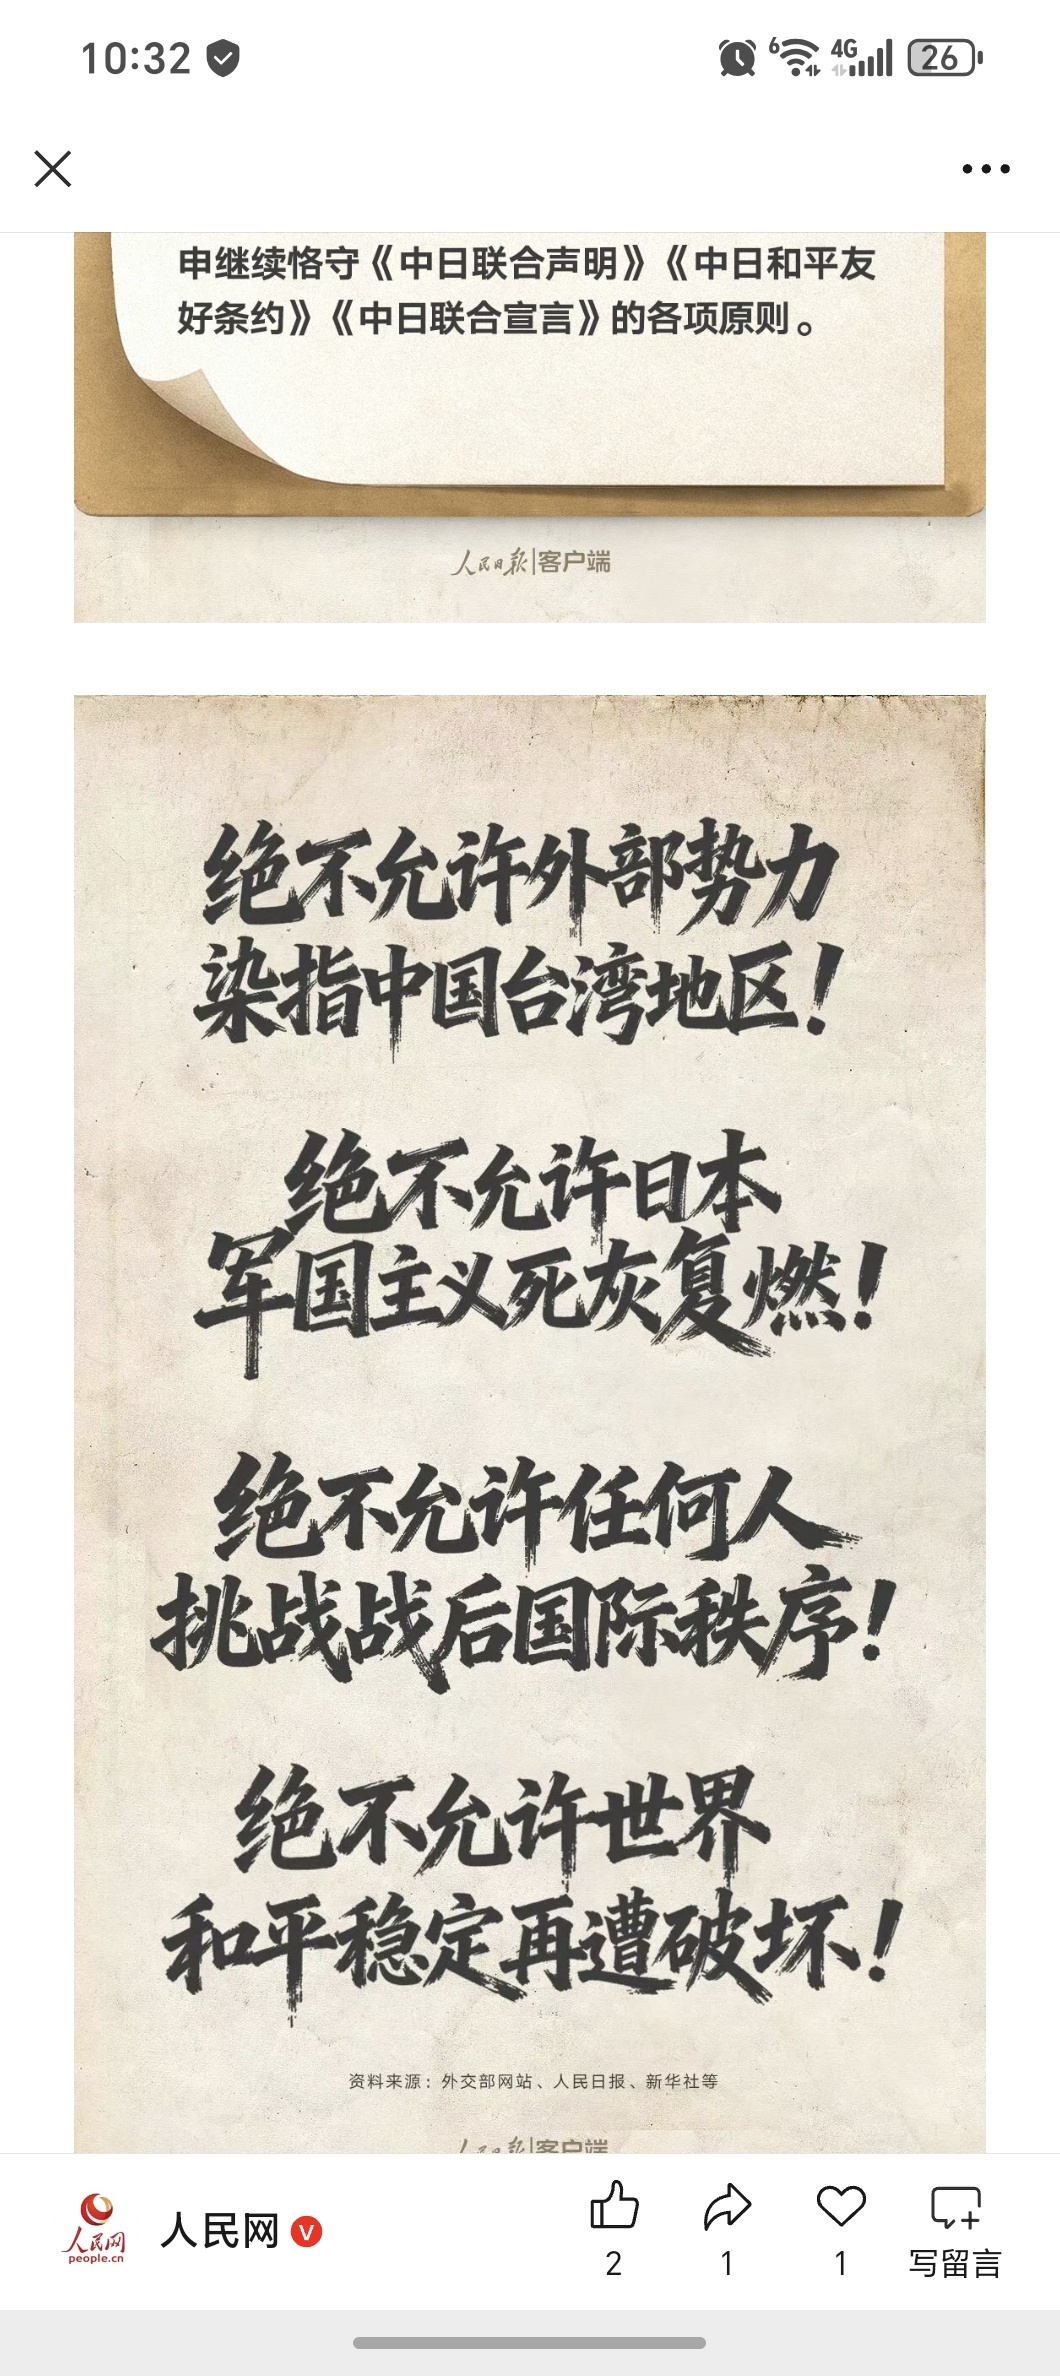 10:32
6
4G
26
申继续恪守《中日联合声明》《中日和平友
好条约》《中日联合宣言》的各项原则。
人民日报|客户端
绝不允许外部势力
染指中国台湾地区!
绝不允许日本
军国主义死灰复燃!
绝不允许任何人
挑战战后国际秩序!
绝不允许世界
和平稳定再遭破坏!
资料来源:外交部网站、人民日报、新华社等
人民日报|客户端
人民网
people.cn
人民网
V
2
1
1
写留言